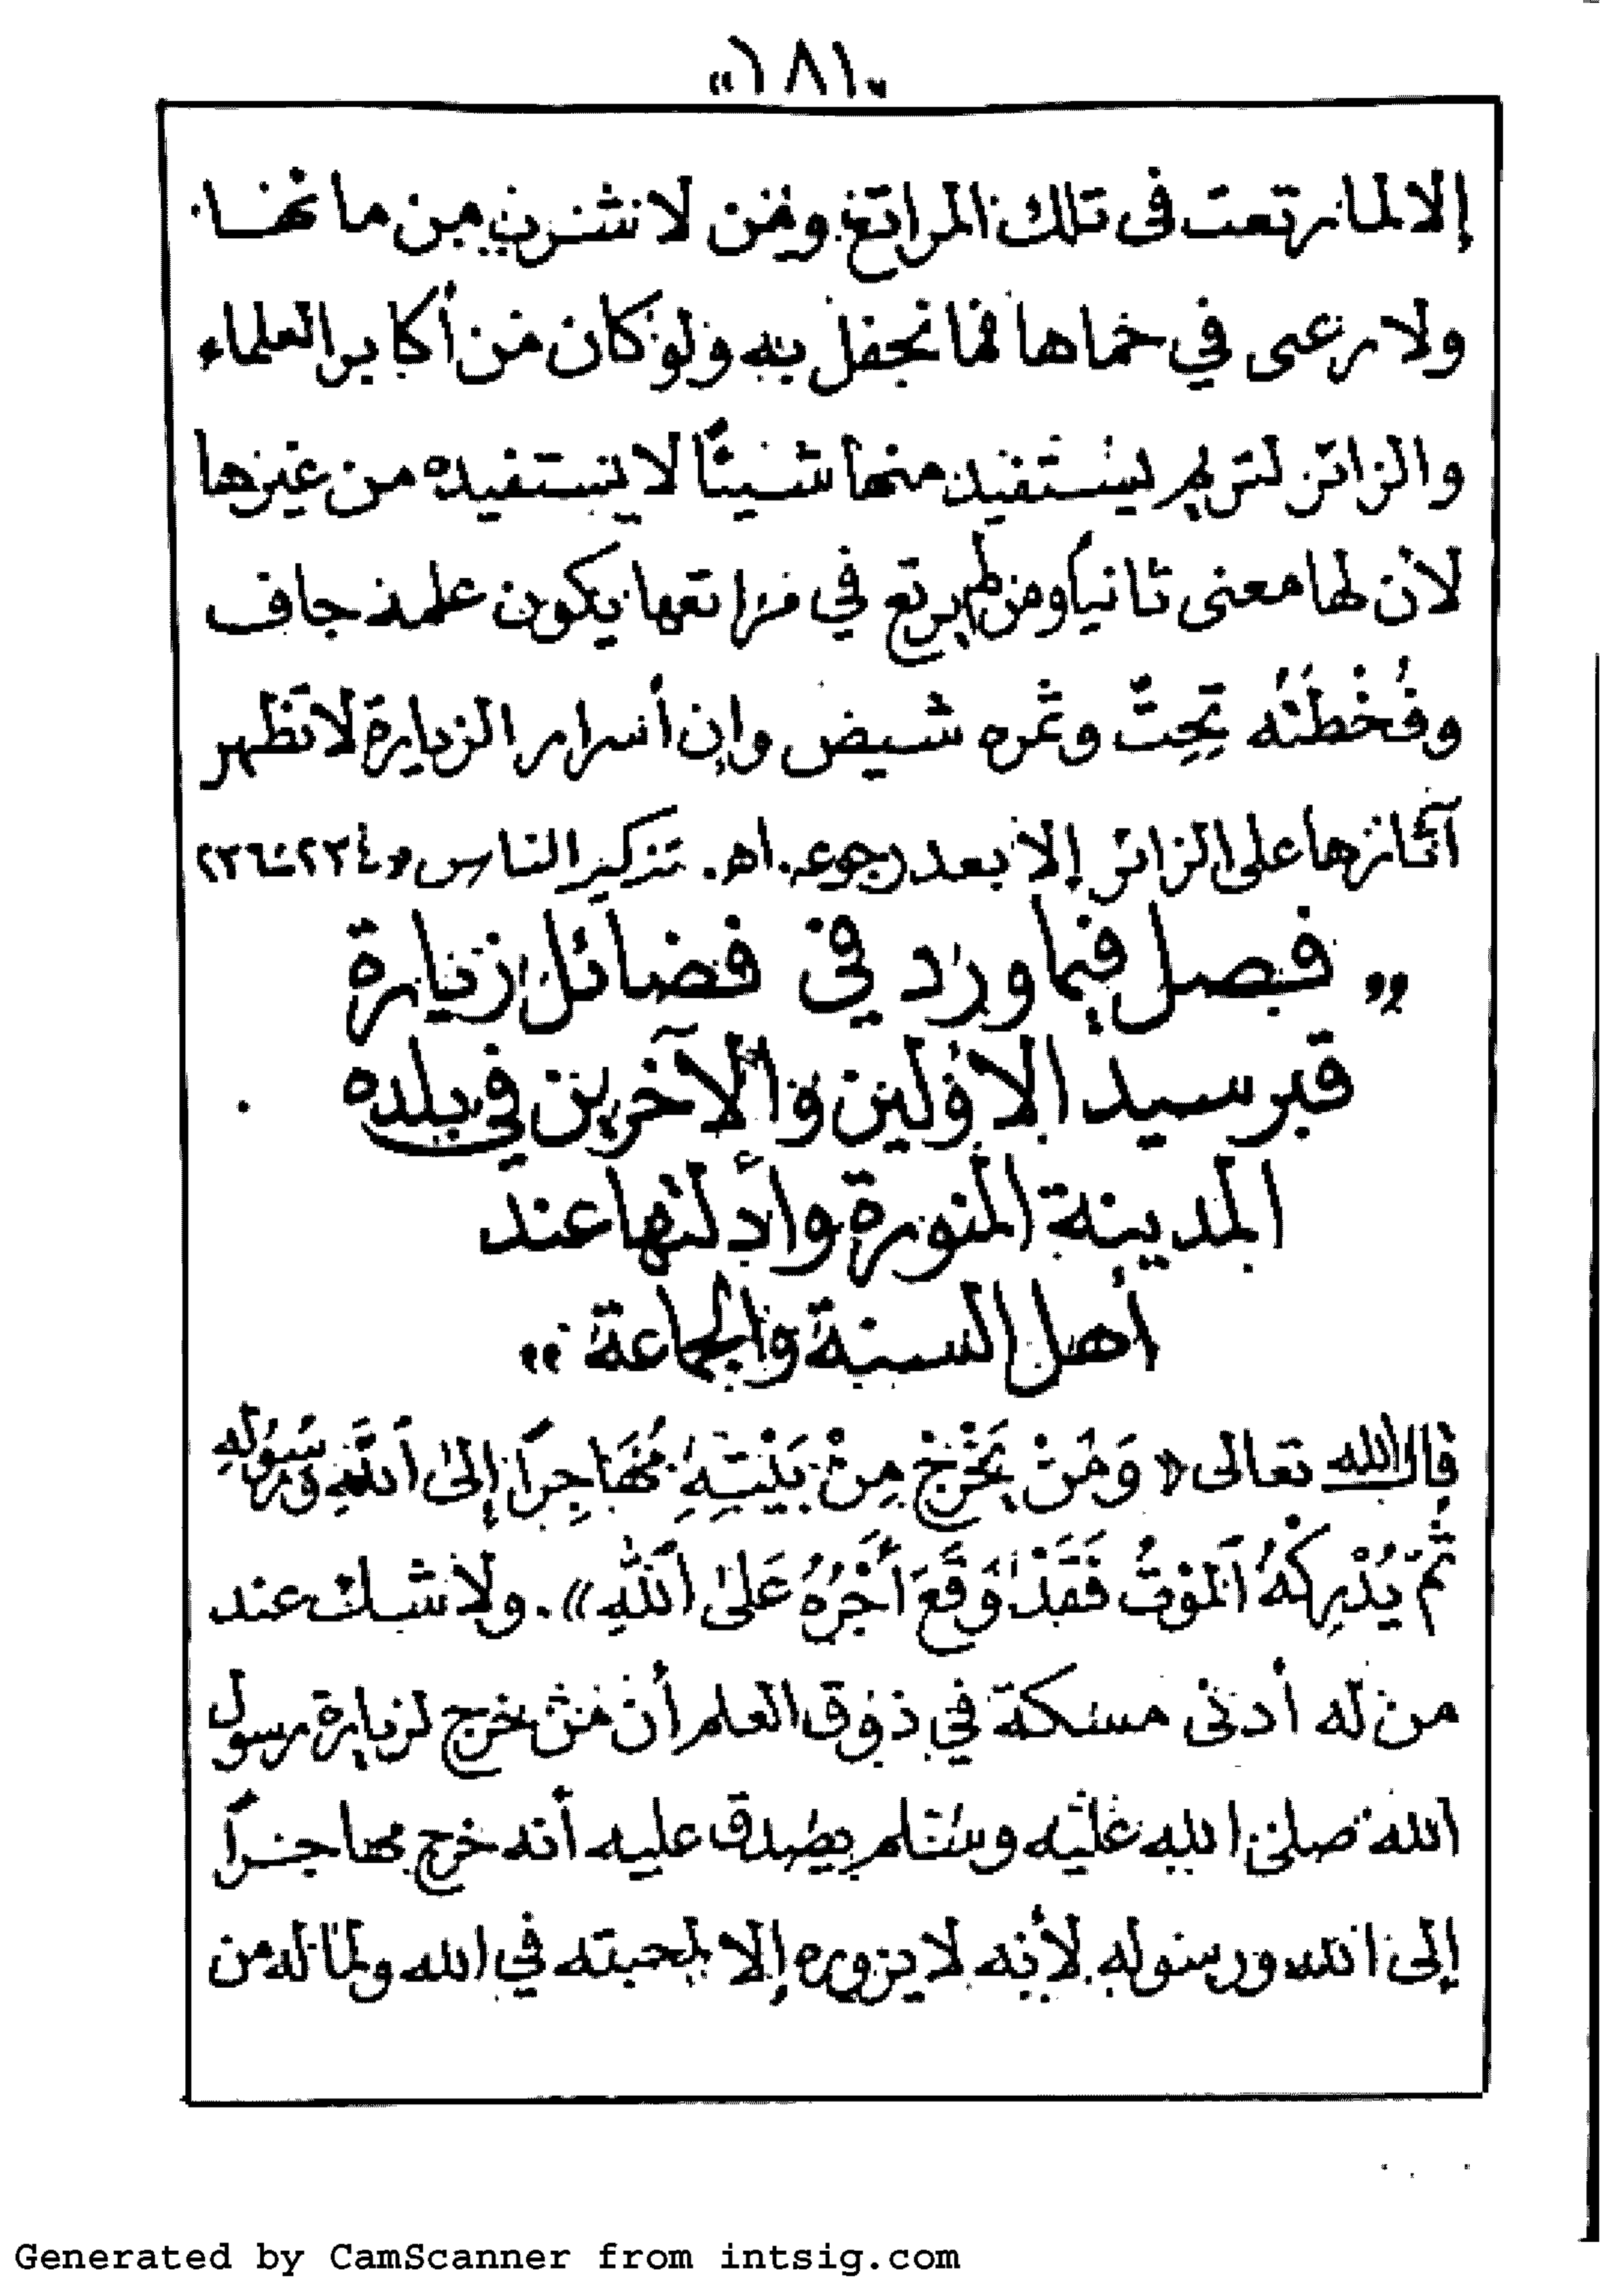 «١٨١»
إلا لمارتعت في تلك المراتع ومن لا شرب من مائها
ولا رعى في حماها فما نحفل به ولو كان من أكابر العلماء
والزائر لتريم يستفيد منها شيئًا لا يستفيده من غيرها
لأن لها معنى ثانيا ومن لم يرتع في مراتعها يكون علمه جاف
وخطته تحت وتمره شيص وإن أسرار الزيارة لا تظهر
آثارها على الزائر إلا بعد رجوعه. اهـ. تذكير الناس ص٢٣٤-٢٣٦
«فصل فيما ورد في فضائل زيارة
قبر سيد الأولين والآخرين في بلده
المدينة المنورة وأدلتها عند
أهل السنة والجماعة»
قال الله تعالى «وَمَنْ يَخْرُجْ مِنْ بَيْتِهِ مُهَاجِرًا إِلَى ٱللَّهِ وَرَسُولِهِ
ثُمَّ يُدْرِكْهُ ٱلْمَوْتُ فَقَدْ وَقَعَ أَجْرُهُ عَلَى ٱللَّهِ». ولا شك عند
من له أدنى مسكة في ذوق العلم أن من خرج لزيارة رسول
الله صلى الله عليه وسلم يصدق عليه أنه خرج مهاجرًا
إلى الله ورسوله لأنه لا يزوره إلا لمحبته في الله ولما له من
Generated by CamScanner from intsig.com